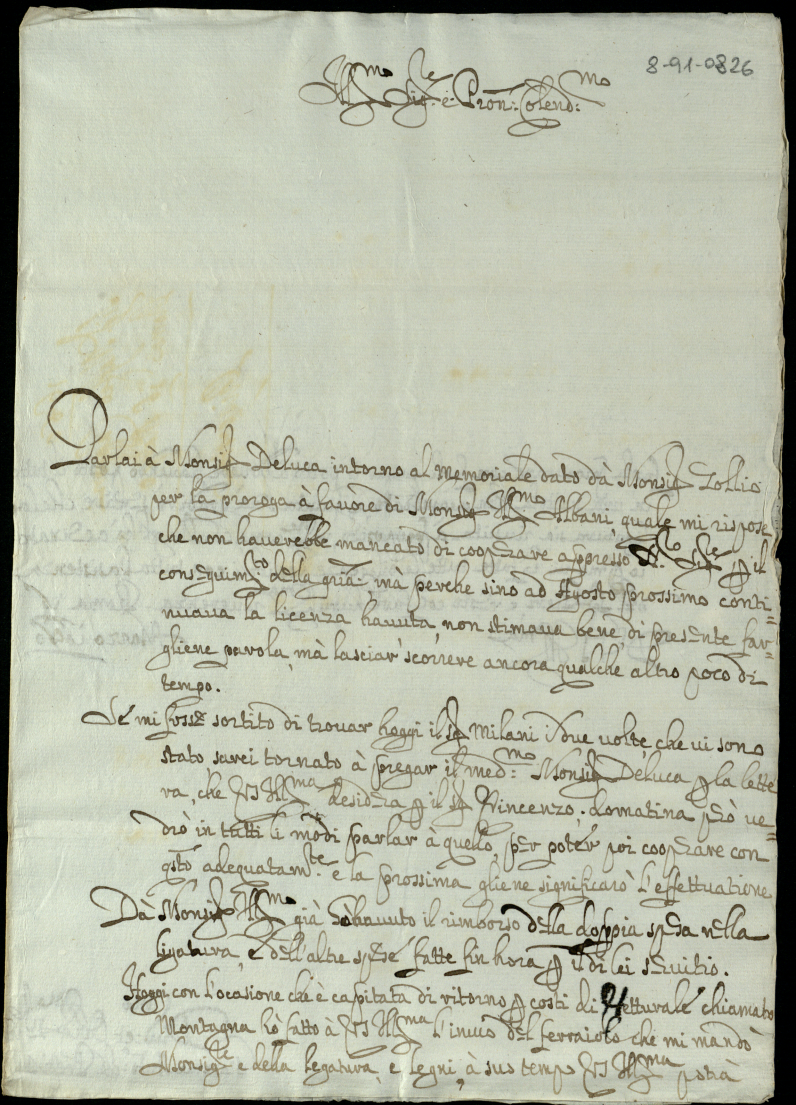 8-91-0826
Ill.mo Sig.re e Pron: Colend:mo
Parlai à Monsig.r Deluca intorno al memoriale dato dà Monsig.r Zollio
per la proroga à favore di Monsig.r Ill.mo Albani, quale mi rispose
che non hauerebbe mancato di cooperare appresso il
conseguim.to della gria: mà perche sino ad Agosto prossimo conti=
nuaua la licenza hauuta, non stimaua bene di presente far=
gliene parola, mà lasciar' scorrere ancora qualche altro poco di
tempo.
Sé mi fosse sortito di trouar hoggi il S.r Milani in due volte, che ui sono
stato, sarei tornato à pregar il med:mo Monsig.r Deluca p la lette
ra, che VS Ill.ma desidera p il S.r Vincenzo. Domatina però ue=
drò in tutti li modi parlar à quello, per poter poi cooperare con
qsto adequatam.te, e la prossima gliene significarò l'effettuatione
Dà Monsig.r Ill.mo già hò hauuto il rimborso della doppia spesa nella
ligatura, e dell'altre spese fatte fin hora p il di lei seruitio.
Hoggi con l'ocasione che è capitata di ritorno p costì di Vetturale chiamato
Montagna hò fatto à VS Ill.ma l'inuio del ferraiolo che mi mandò
Monsig.re e della legatura, e legni, à suo tempo VS Ill.ma potrà